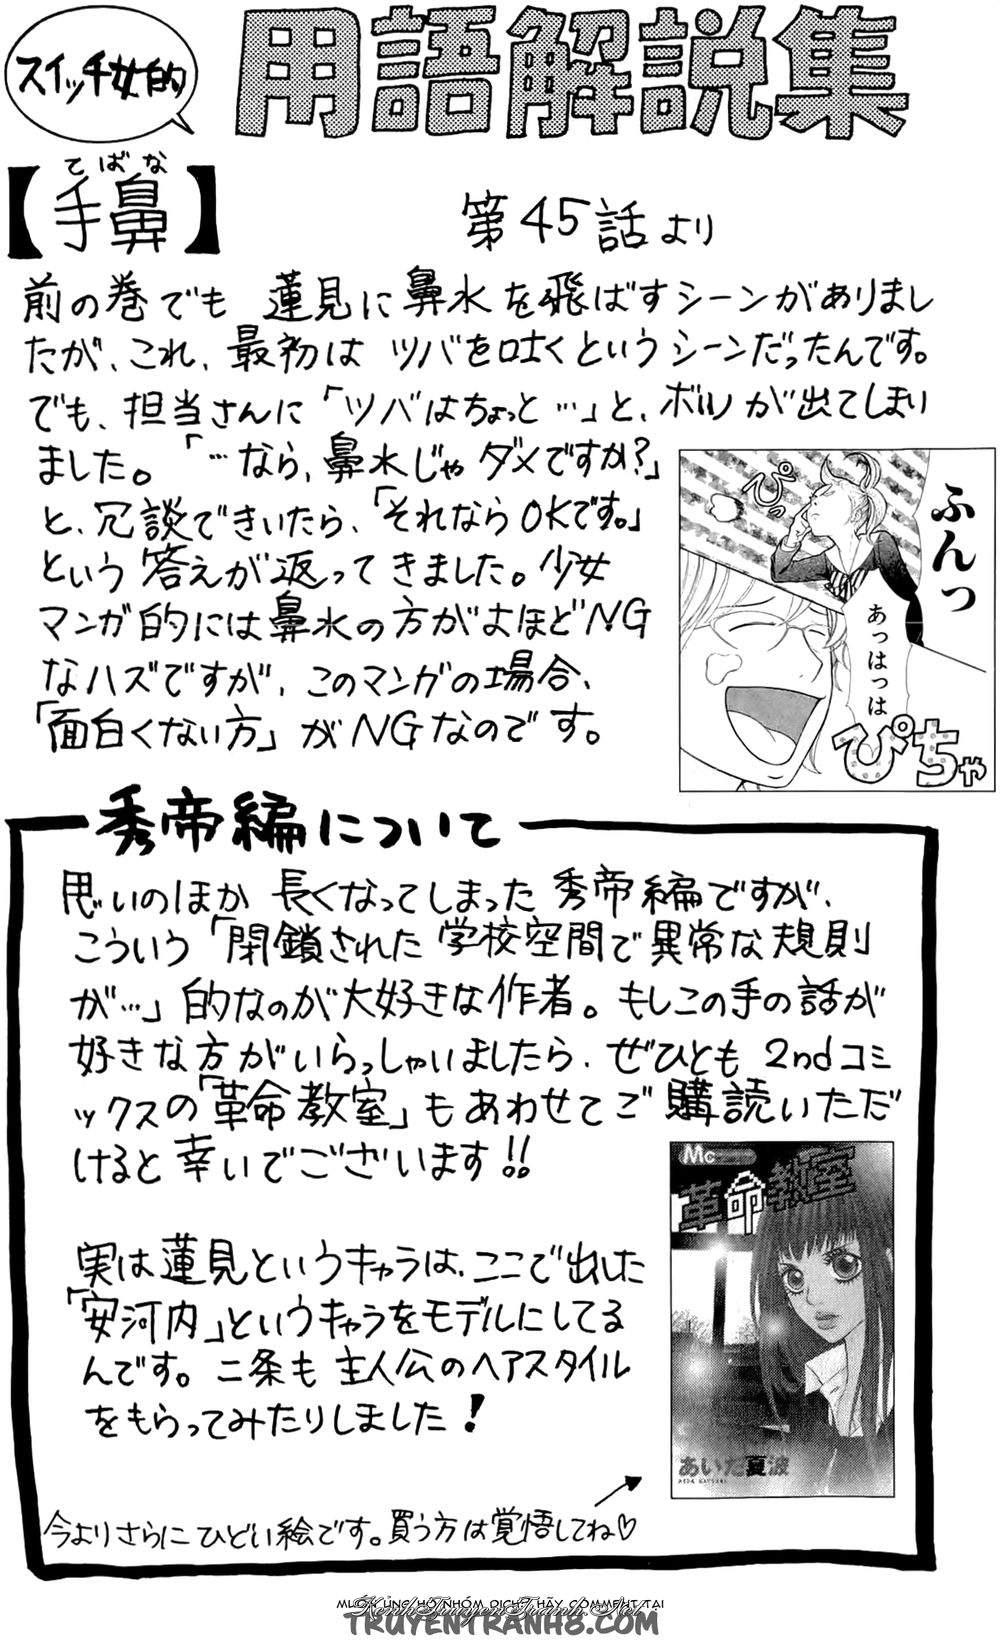 スイッチ女的
用語解説集
てばな
【手鼻】
第45話より
前の巻でも 蓮見に鼻水を飛ばすシーンがありまし
たが、これ、最初は ツバを吐くというシーンだったんです。
でも、担当さんに「ツバはちょっと…」と、ボツが出てしまい
ました。「…なら、鼻水じゃダメですか?」
と、冗談できいたら、「それならOKです。」
という 答えが返ってきました。少女
マンガ的には鼻水の方がよほどNG
なハズですが、このマンガの場合、
「面白くない方」がNGなのです。
ぴっ
ふんっ
あっはっは
ぴちゃ
秀帝編について
思いのほか 長くなってしまった 秀帝編ですが、
こういう「閉鎖された学校空間で異常な規則
が…」的なのが大好きな作者。もしこの手の話が
好きな方がいらっしゃいましたら、ぜひとも 2ndコミ
ックスの「革命教室」もあわせてご購読いただ
けると 幸いでございます!!
実は蓮見というキャラは、ここで出した
「安河内」というキャラをモデルにしてる
んです。二条も 主人公のヘアスタイル
をもらってみたりしました!
Mc
革命教室
あいだ夏波
今よりさらにひどい絵です。買う方は覚悟してね♡
MUỐN ỦNG HỘ NHÓM DỊCH? HÃY COMMENT TẠI
KenhTruyenTranh.Net
TRUYENTRANH8.COM